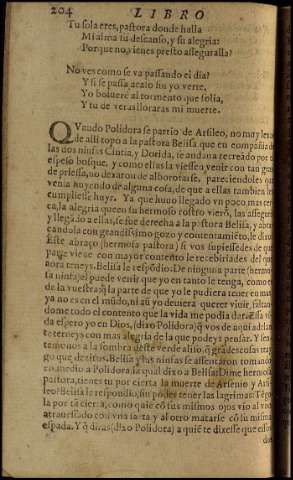 204 LIBRO
Tu sola eres, pastora donde halla
Mi alma tu descanso, y su alegria:
Porque no vienes presto asseguralla?
No ves como se va passando el dia?
Y si se passa acaso sin yo verte,
Yo bolverè al tormento que solia,
Y tu de veras lloraras mi muerte.
QVando Polidora se partio de Arsileo, no muy lexos
de alli topo a la pastora Belisa, que en compañia de
las dos ninfas Cintia, y Dorida, se andaua recreãdo por el
espeso bosque, y como ellas la viessen venir con tan grande
priessa, no dexarou de alborotarse, pareciendoles que
venia huyendo de alguna cosa, de que a ellas tambien les
cumpliesse huyr. Ya que huuo llegado vn poco mas cerca,
la alegria que en su hermoso rostro vierõ, las asseguró
y llegãdo a ellas, se fue derecha a la pastora Belisa, y abraçandola
con grandissimo gozo y contentamiẽto, le dixo:
Este abraço (hermosa pastora) si vos supiessedes de que
parte viene con mayor contento le recebiriades del que
aora teneys. Belisa le respõdio: De ninguna parte (hermosa
ninfa) el puede venir que yo en tanto le tenga, como es
de la vuestra:
ya no es en el mũdo, ni aũ yo deuiera querer viuir, faltandome
todo el contento que la vida me podia dar.
da espero yo en Dios, (dixo Polidora) q̃ vos de aqui adelante
terneys con mas alegria de la que podeys pensar. Y sentemonos
a la sombra deste verde aliso, q̃ grãdes cosas traygo
que deziros. Belisa y las ninfas se assentaron tomando
en medio a Polidora, la qual dixo a Belisa: Dime hermosa
pastora, tienes tu por cierta la muerte de Arsenio y Arsileo?
Belisa le respondio, sin poder tener las lagrimas: Tẽgola
por tã cierta, como quiẽ cõ sus mismos ojos vio al vno
atrauessado cõ vna saeta y al otro matarse cõ su misma
espada. Y q̃ diras (dixo Polidora) a quiẽ te dixesse que essos